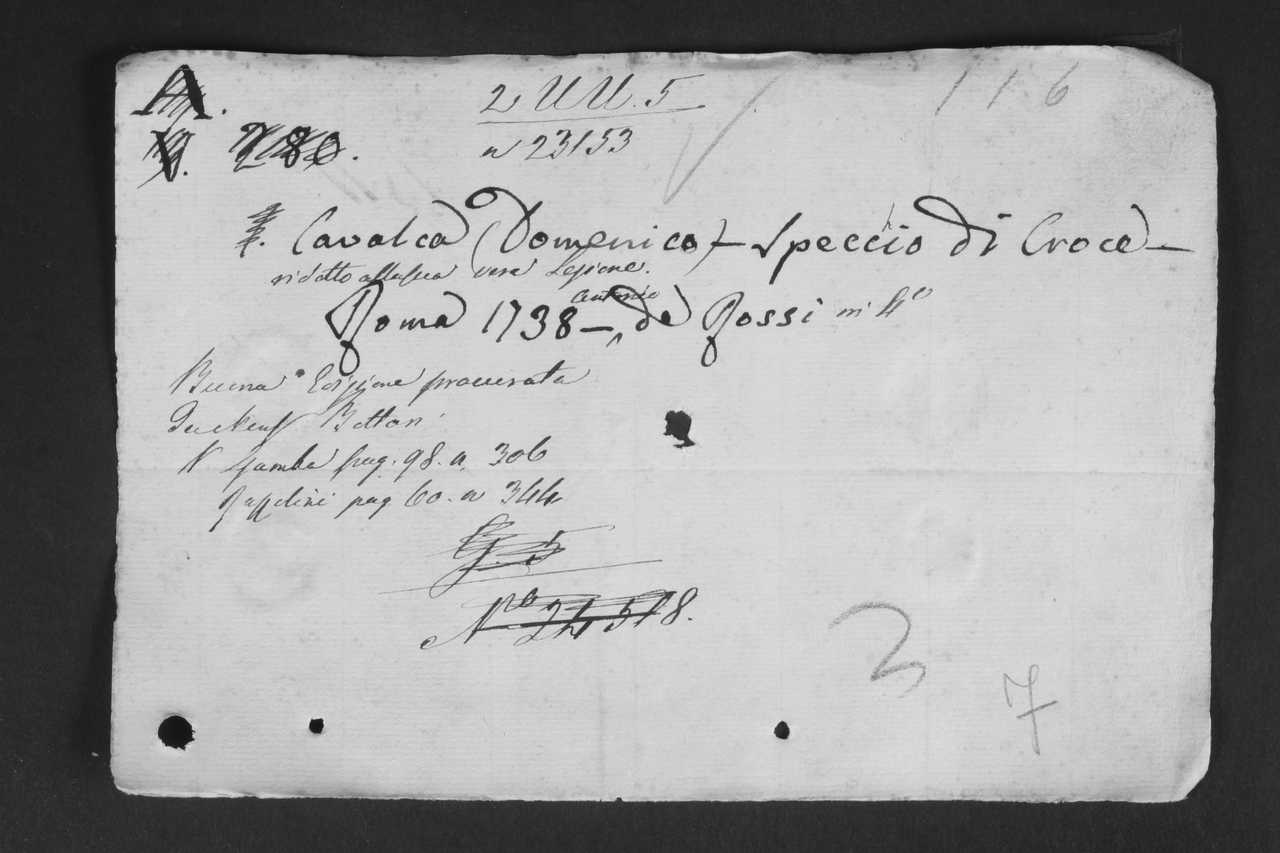 A.
2 UU. 5
116
V. 280.
n 23153
Cavalca (Domenico) - Specchio di Croce -
ridotto alla sua vera Lezione.
Antonio
Roma 1738 - de Rossi in 4º
Buona Edizione procurata
Bottari
N Gamba pag. 98. n. 306
pag 60. n 344
G. 5
Nro 24518.
3
7